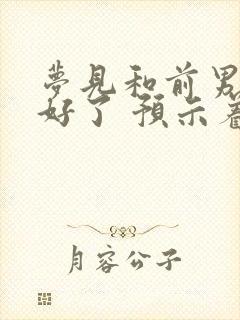 夢見和前男
好了 預示着
月容公子